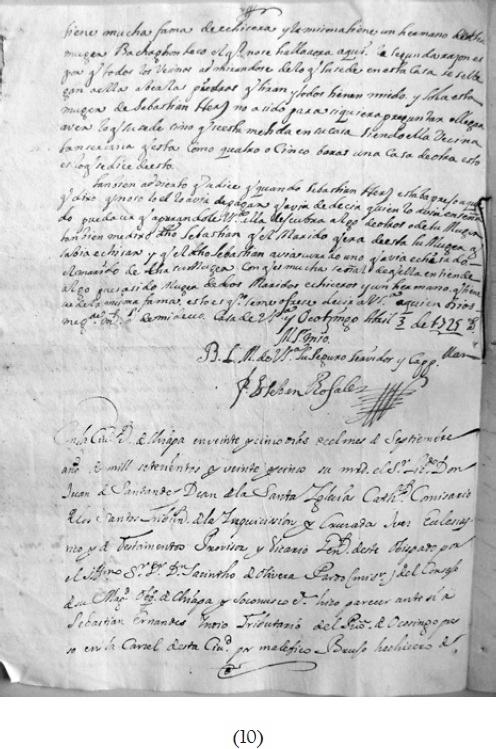 tiene mucha fama de echisera y la misma tiene un hermano
muger Bachaghonteco el q no se hallaora aqui. la segunda razon es
por q todos los Vesinos admirandose de lo q susede en esta Casa se
gan a ella a ber las piedras q tiran y todos tienen miedo, y sola esta
muger de Sebastian Herz no a sido para siquiera preguntar o llegar
a ver lo q susede sino q se esta metida en su casa siendo ella Vecina
y esta como quatro o Cinco baras una Casa de otra esto
es lo q se dice de esta.
tambien adbierto q quando Sebastian Herz estaba preso aqui
q dixo q no solo el lo avia de pagar q avia de decir quien lo avia enseña
do puede ser q apurandole descubra algo de otros o de la Muger
tambien me dixo dho Sebastian q el Marido q era de esta la Muger
sabia echisar y q el dho Sebastian avia curado uno q avia echisado
el marido de dha su Muger con q es mucha señal q ella entiende
algo pues a sido Muger de dos Maridos echiceros y un hermano q tiene
de la misma fama, esto es q se me ofrece decir a Vmd a quien Dios
me gue ms as de mi afecto. Casa de Vmd y Ocotzingo Abril 3 de 1725 as
Mr mio.
B. L. M. de Vmd su seguro servidor y Cappn
Fr. Esteban Rosales
En la Ciud. de Chiapa en veinte y cinco dias de el mes de Septiembre
año de mill setecientos y veinte y cinco su md. el Sr. Licdo. Don
Juan de Santander Dean de la Santa Yglesia Cathl. Comisario
de los Santos Tribun. de la Inquicission y Cruzada Juez Eclesias
tico y de Testamentos Provisor y Vicario Genl. de este Obispado por
el Illmo Sr. Dr. Dn. Jacintho de Olivera Pardo (mi sr.) del Consejo
de su Magd. Obpo. de Chiapa y Soconusco &a. hizo parecer ante si a
Sebastian Fernandes Indio Tributario del Pueo. de Ocosingo pre
so en la Carcel de esta Ciud. por malefico Brujo hechisero &a.
(10)